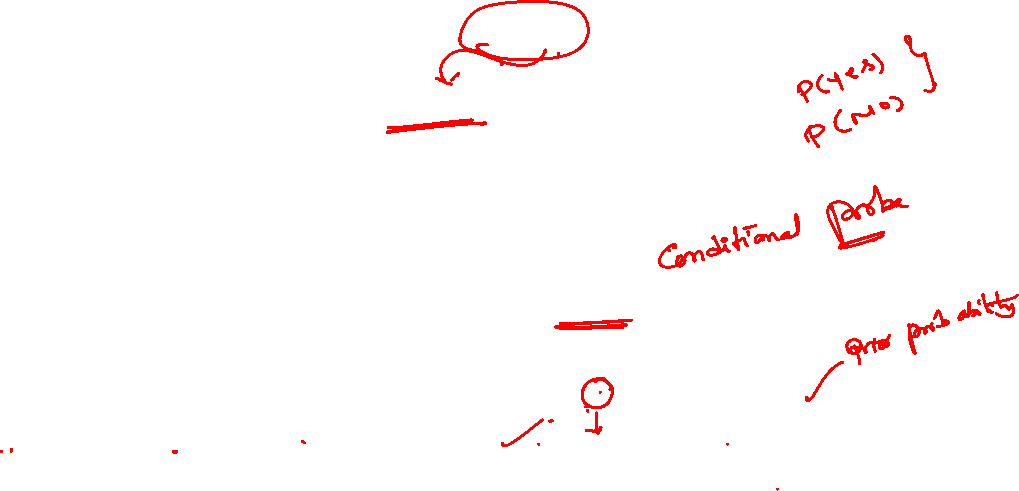 P(Yes)
P(No)
Conditional Probe
prior probability